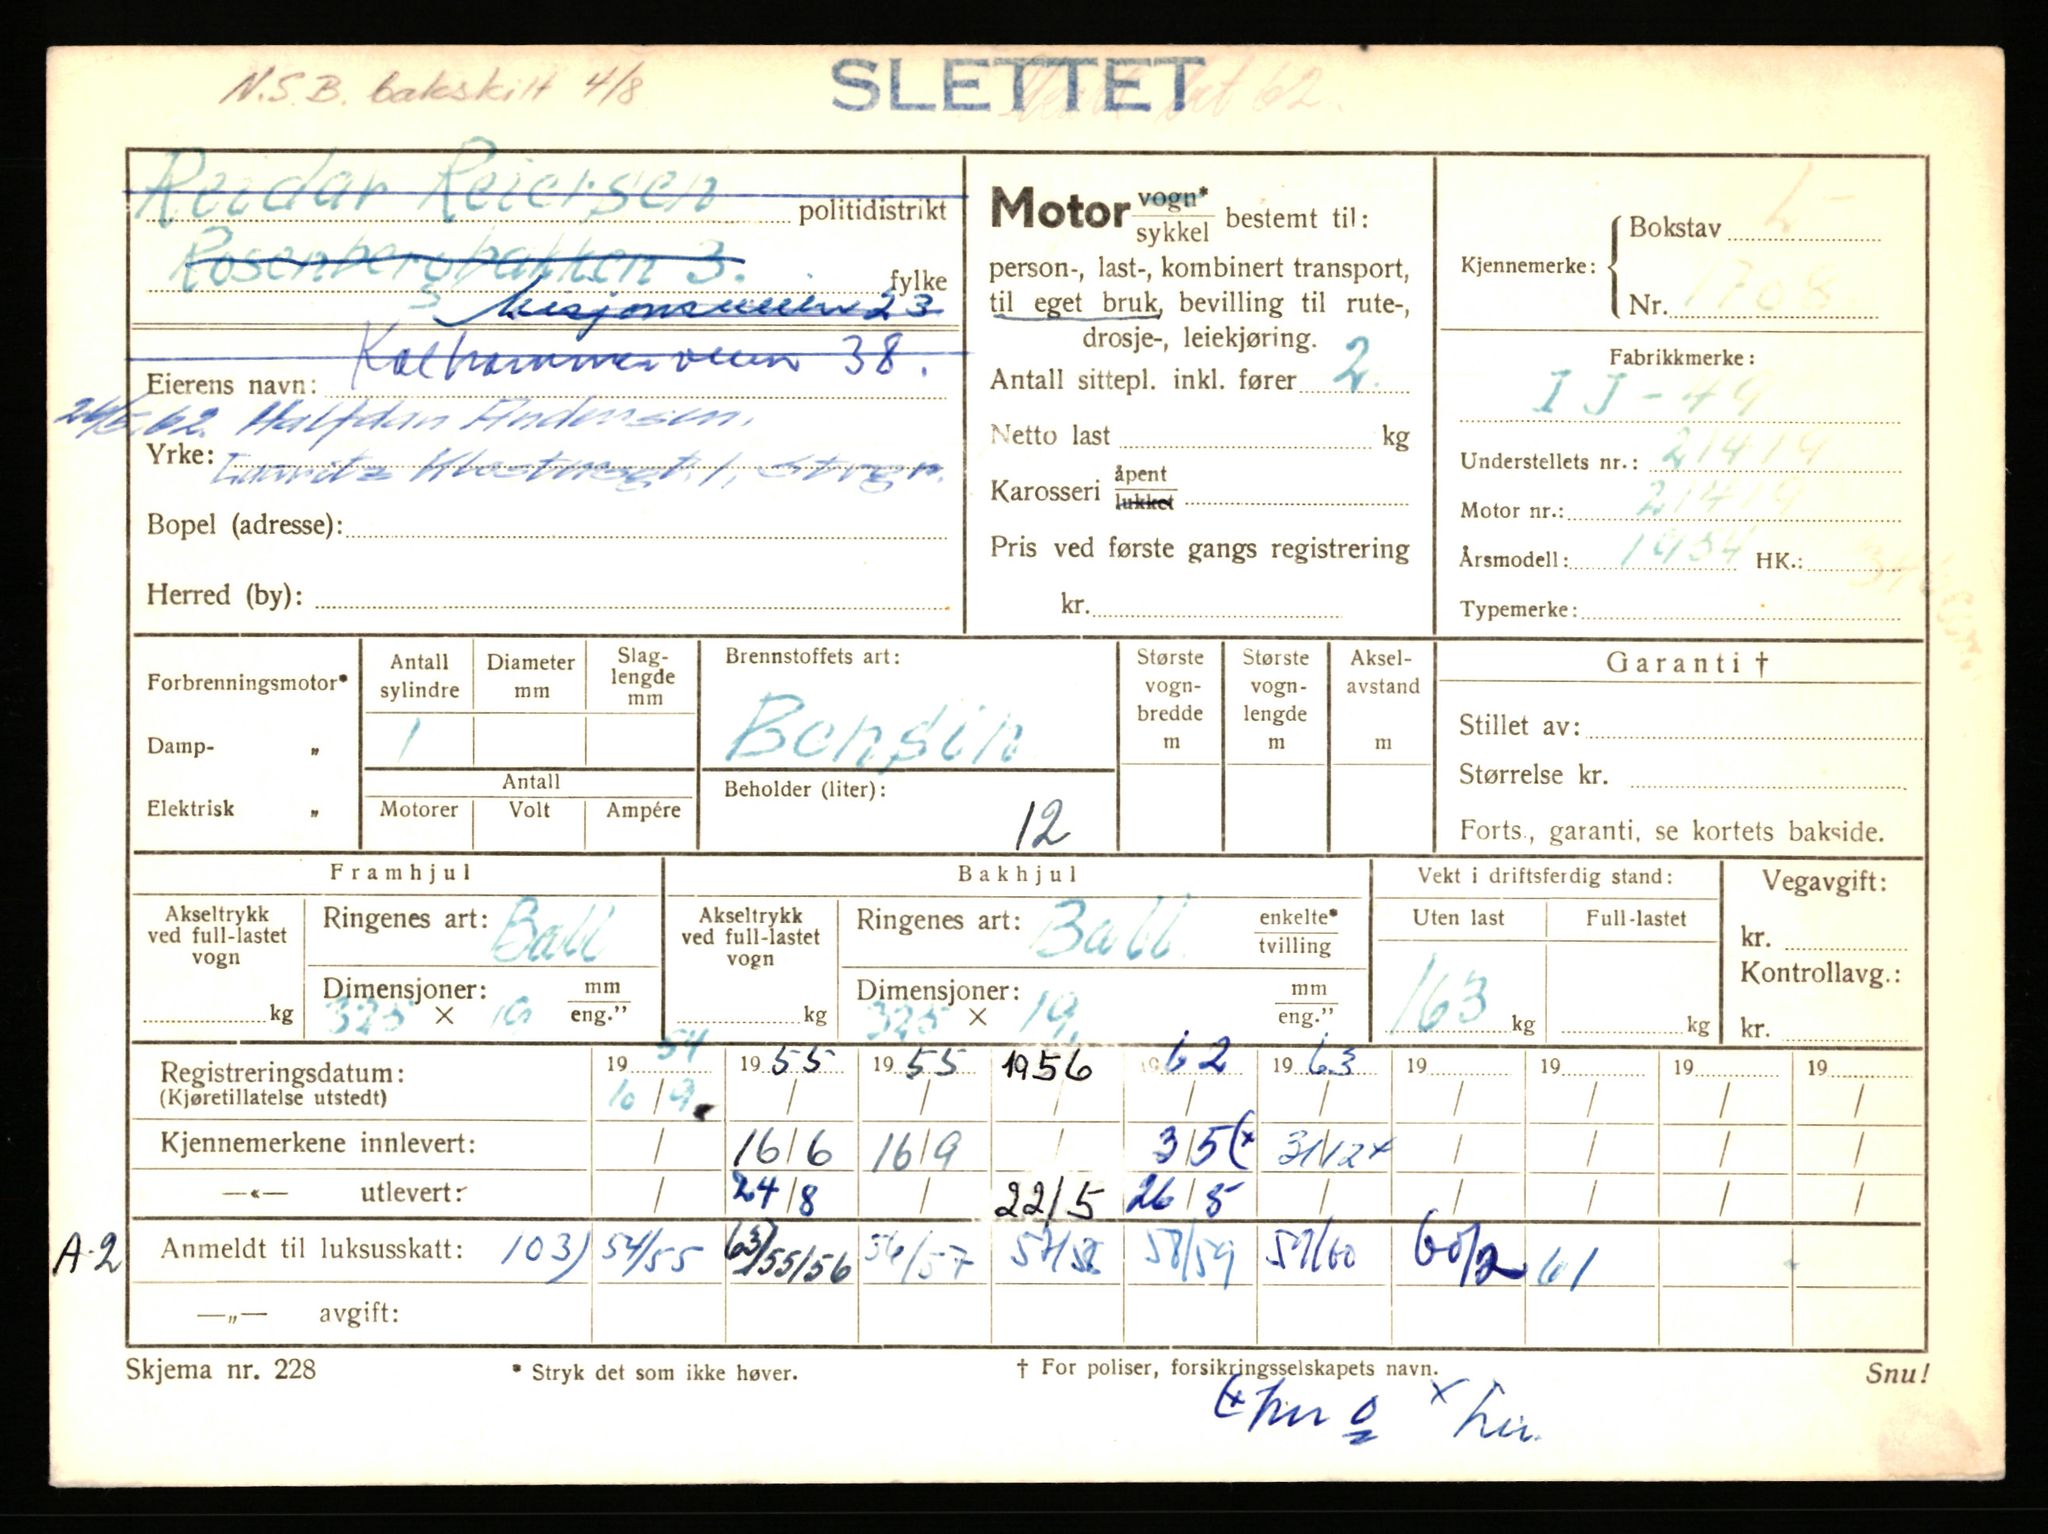 N.S.B. bakskilt 4/8
SLETTET
62.
Reidar Reiersen politidistrikt
Rosenbergbakken 3. fylke
Misjonsveien 23
Kalhammerveien 38.
Eierens navn:
26/5.62. Halfdan Andersen.
Yrke:
Bopel (adresse):
Herred (by):
Motor vogn* / sykkel bestemt til:
person-, last-, kombinert transport,
til eget bruk, bevilling til rute-,
drosje-, leiekjøring.
Antall sittepl. inkl. fører 2.
Netto last kg
Karosseri åpent / lukket
Pris ved første gangs registrering
kr.
Kjennemerke: Bokstav L-
Nr. 1708
Fabrikkmerke:
IJ-49
Understellets nr.: 21419
Motor nr.: 21419
Årsmodell: 1954 HK.:
Typemerke:
Forbrenningsmotor*
Damp- „
Elektrisk „
Antall sylindre Diameter mm Slaglengde mm
1
Antall
Motorer Volt Ampére
Brennstoffets art:
Bensin
Beholder (liter):
12
Største vognbredde m Største vognlengde m Akselavstand m
Garanti †
Stillet av:
Størrelse kr.
Forts., garanti, se kortets bakside.
Framhjul
Akseltrykk ved full-lastet vogn
kg
Ringenes art: Ball
Dimensjoner: mm / eng."
325 × 19
Bakhjul
Akseltrykk ved full-lastet vogn
kg
Ringenes art: Ball enkelte* / tvilling
Dimensjoner: mm / eng."
325 × 19.
Vekt i driftsferdig stand:
Uten last Full-lastet
163 kg kg
Vegavgift:
kr.
Kontrollavg.:
kr.
Registreringsdatum: 1954 1955 1955 1956 1962 1963 19 19 19 19
(Kjøretillatelse utstedt) 10/9. / / / / / / / / /
Kjennemerkene innlevert: / 16/6 16/9 / 3/5(x 31/12x / / / /
—«— utlevert: / 24/8 / 22/5 26/5 / / / / /
A-2 Anmeldt til luksusskatt: 103) 54/55 63)/55/56 56/57 57/58 58/59 59/60 60/2 61
—„— avgift:
Skjema nr. 228 * Stryk det som ikke høver. † For poliser, forsikringsselskapets navn. Snu!